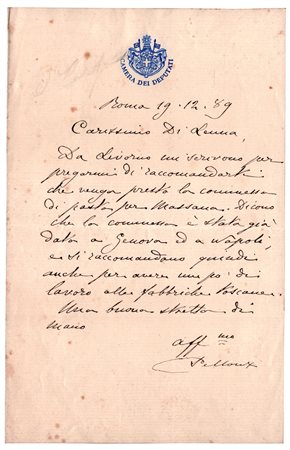 CAMERA DEI DEPUTATI
Roma 19-12-89
Carissimo Di Lenna,
Da Livorno mi scrivono per
pregarmi di raccomandarti
che venga presto la commessa
di pasta per Massaua. Dicono
che la commessa è stata già
data a Genova ed a Napoli,
e si raccomandano quindi
anche per avere un po' di
lavoro alle fabbriche toscane.
Una buona stretta di
mano
aff mo
Pelloux